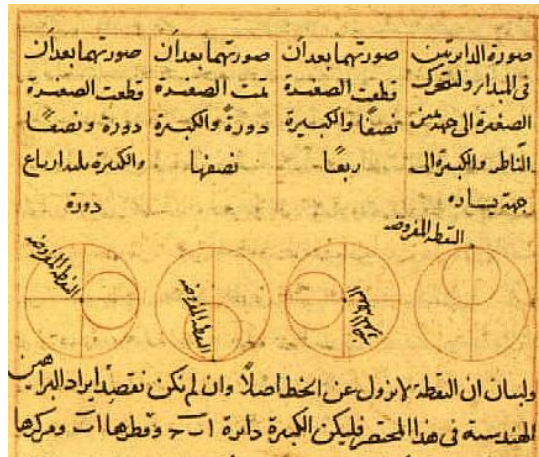 صورة الدايرتين
فى المبدا ولتتحرك
الصغيرة الى جهة يمين
الناظر والكبيرة الى
جهة يساره
صورتهما بعد ان
قطعت الصغيرة
نصفًا والكبيرة
ربعًا
صورتهما بعد ان
تمت الصغيرة
دورةً والكبيرة
نصفها
صورتهما بعد ان
قطعت الصغيرة
دورة ونصفًا
والكبيرة ارباع
دورة
النقطة المفروضه
النقطة المفروضه
النقطة المفروضه
ولبيان ان النقطة لا تزول عن الخط اصلًا وان لم يكن ايراد البراهين
الهندسية فى هذا المختصر فليكن الكبيرة دائرة وقطرها اب ومركزها